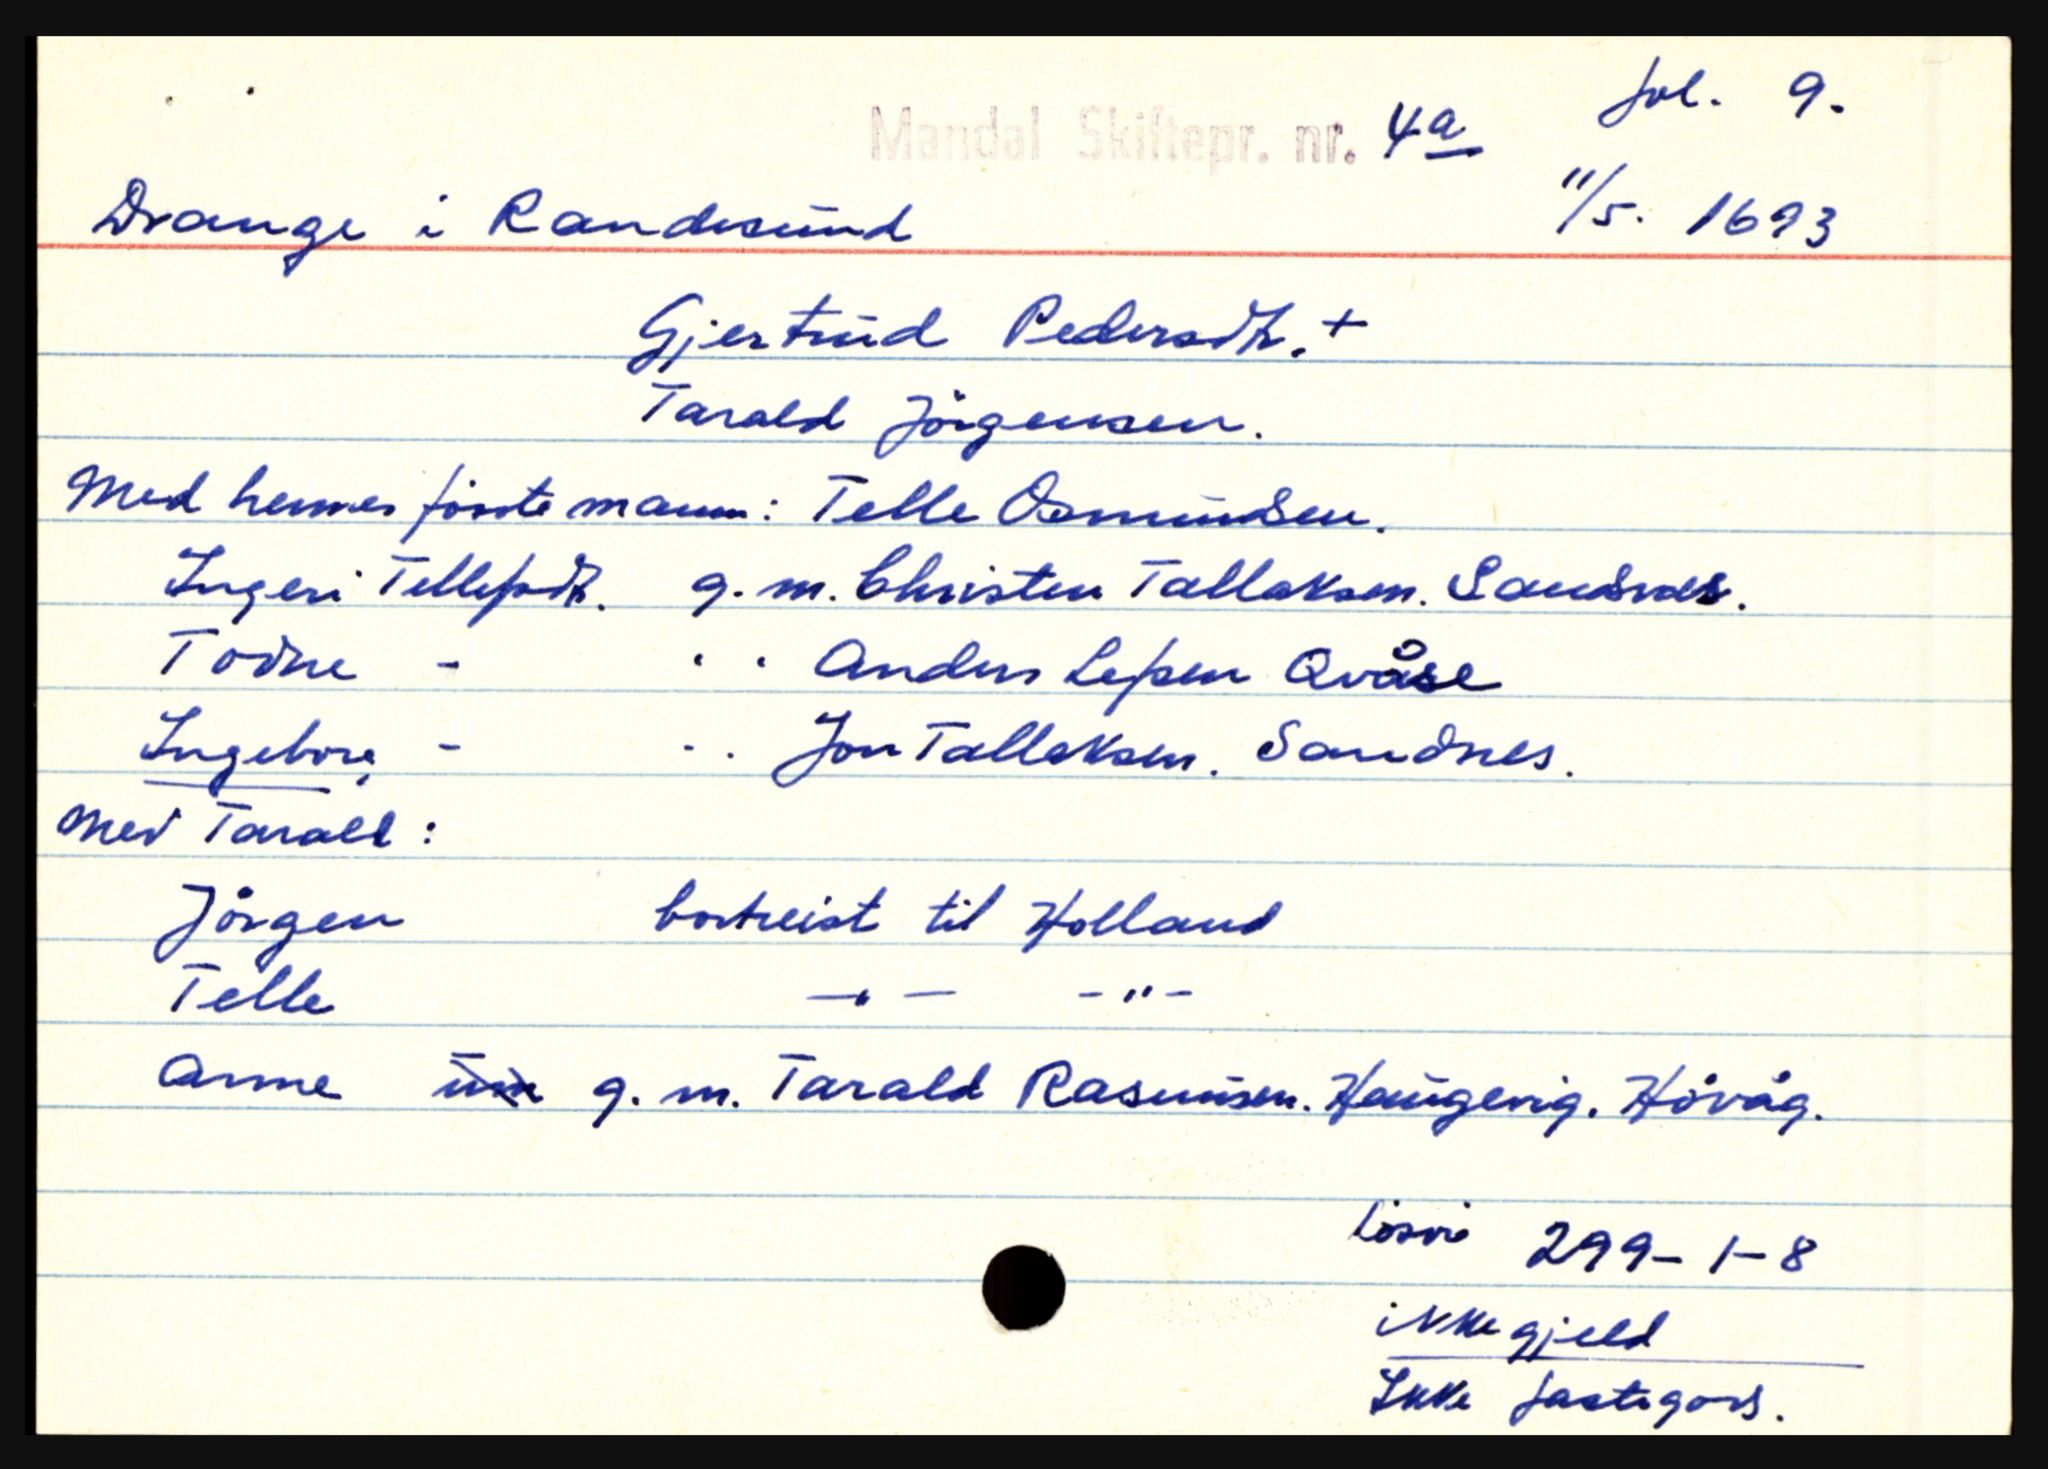 fol. 9.
Mandal Skiftepr. nr. 4a
Drange i Randesund 11/5. 1693
Gjertrud Pedersdtr. +
Tarald Jörgensen.
Med hennes förste mann: Telle Osmundsen.
Ingeri Tellefsdtr. g. m. Christen Tallaksen. Sandnes.
Todne - " " Anders Lefsen Qvåse
Ingeborg - " " Jon Tallaksen. Sandnes.
Med Tarald:
Jörgen bortreist til Holland
Telle -"- -"-
Anne g. m. Tarald Rasmusen. Haugevig. Hövåg.
Lösöre 299-1-8
ikke gjeld
Ikke fastegods.